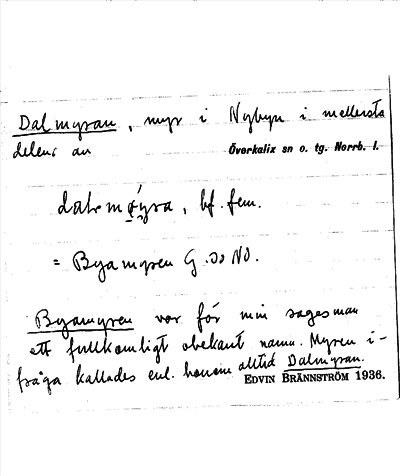 Dalmyran, myr i Nybyn i mellersta
delen av Överkalix sn o. tg. Norrb. l.
bf. fem.
= Byamyren G.30 NO.
Byamyren var för min sagesman
ett fullkomligt obekant namn. Myren i-
fråga kallades enl. honom alltid Dalmyran.
EDVIN BRÄNNSTRÖM 1936.